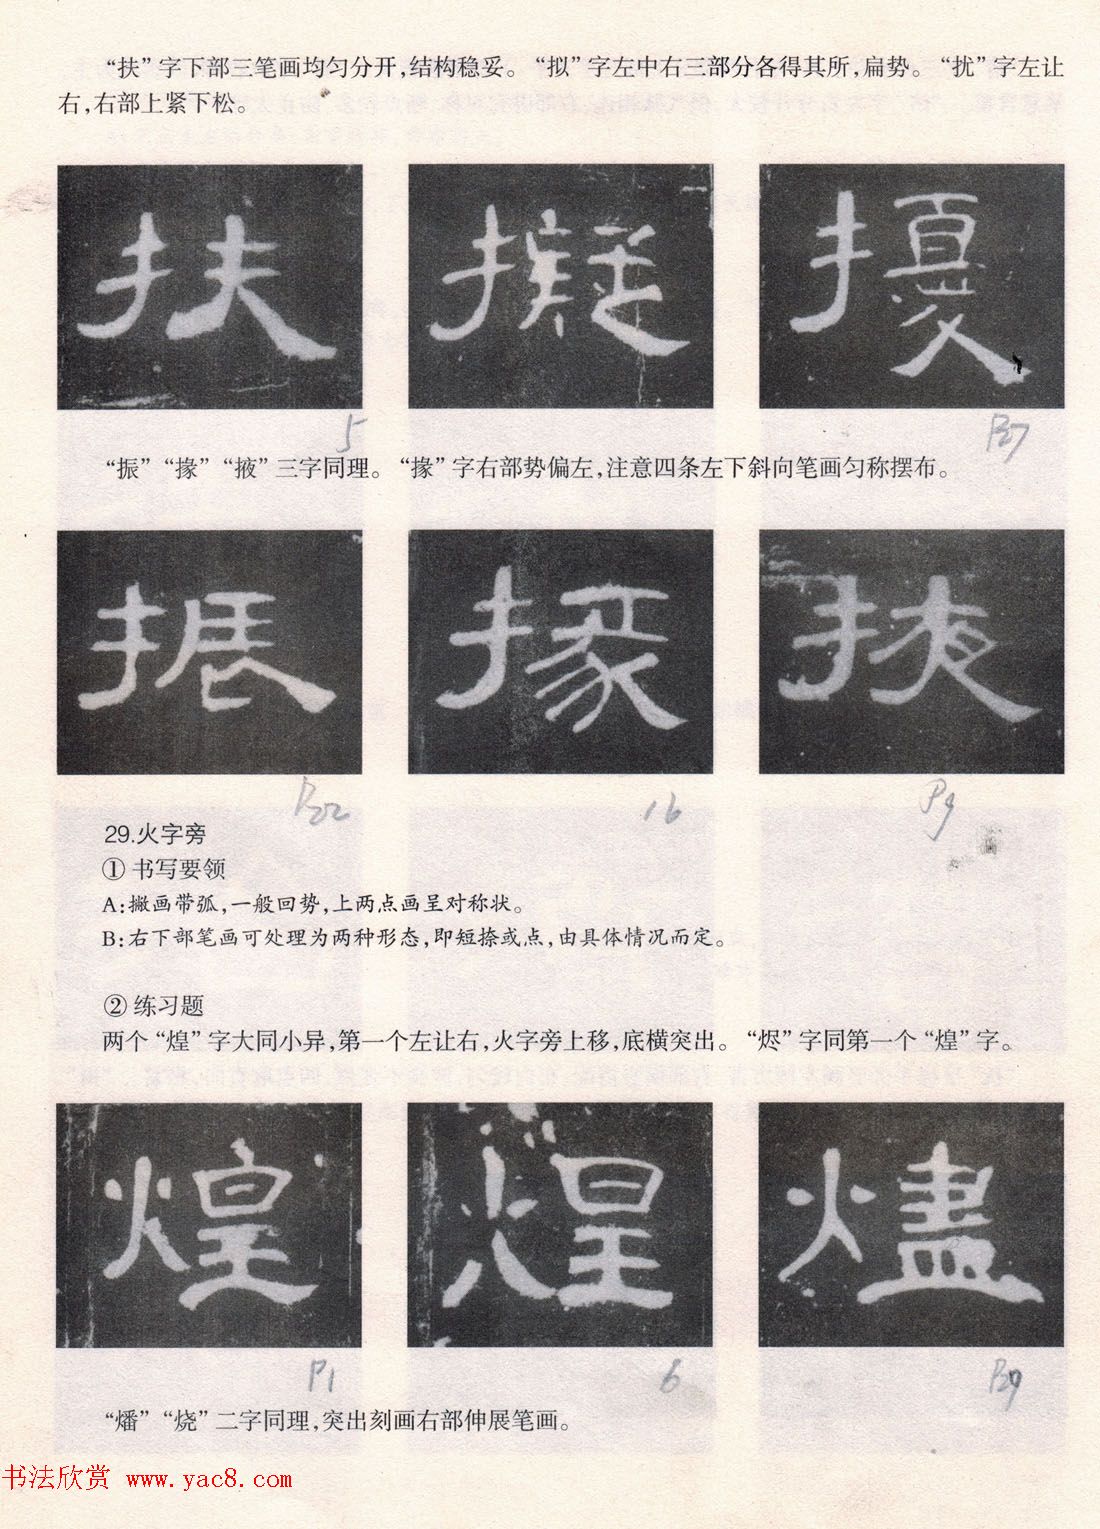 “扶”字下部三笔画均匀分开,结构稳妥。“拟”字左中右三部分各得其所,扁势。“扰”字左让
右,右部上紧下松。
扶 擬 擾
5 P27
“振”“掾”“掖”三字同理。“掾”字右部势偏左,注意四条左下斜向笔画匀称摆布。
振 掾 掖
P22 16 P9
29.火字旁
① 书写要领
A:撇画带弧,一般回势,上两点画呈对称状。
B:右下部笔画可处理为两种形态,即短捺或点,由具体情况而定。
② 练习题
两个“煌”字大同小异,第一个左让右,火字旁上移,底横突出。“烬”字同第一个“煌”字。
煌 煌 燼
P1 6 P29
“燔”“烧”二字同理,突出刻画右部伸展笔画。
书法欣赏 www.yac8.com